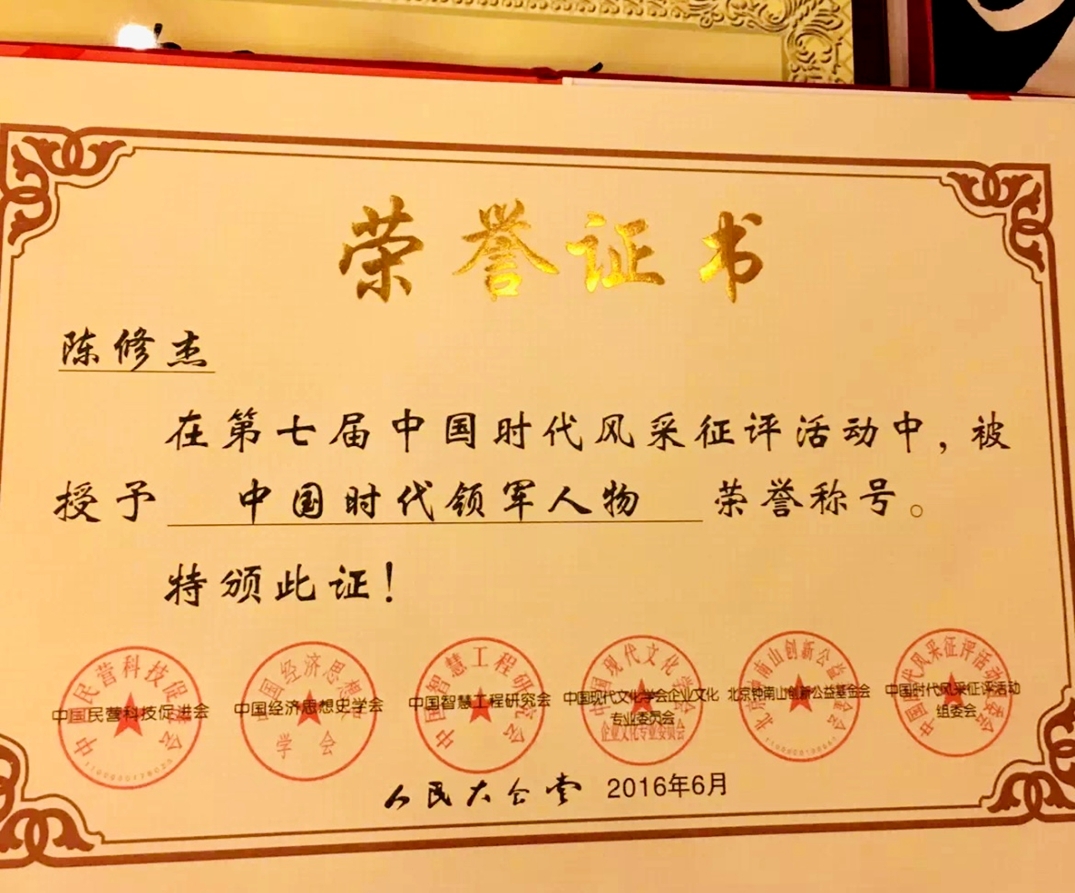 荣誉证书
陈修杰
在第七届中国时代风采征评活动中，被
授予 中国时代领军人物 荣誉称号。
特颁此证！
中国民营科技促进会
中国经济思想史学会
中国智慧工程研究会
中国现代文化学会企业文化
专业委员会
北京钟南山创新公益基金会
中国时代风采征评活动
组委会
中国民营科技促进会
中国经济思想史学会
中国智慧工程研究会
中国现代文化学会
企业文化专业委员会
北京钟南山创新公益基金会
中国时代风采征评活动组委会
人民大会堂 2016年6月